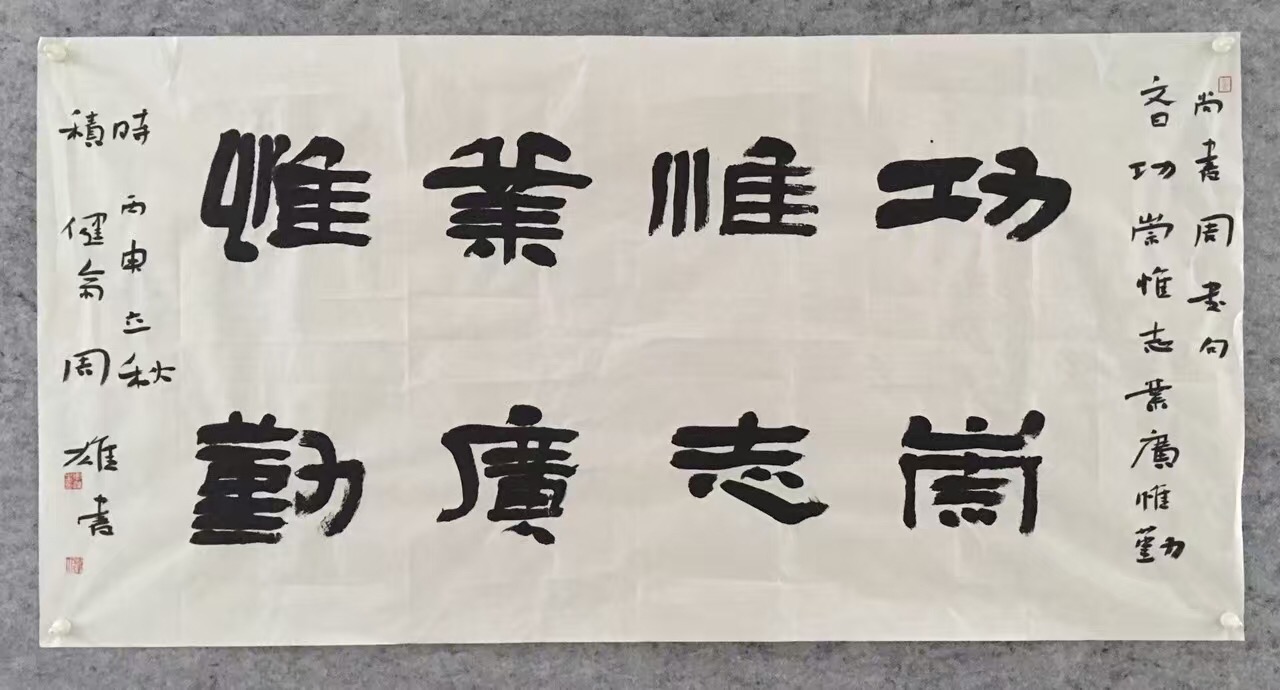 尚書周書句
文曰功崇惟志業廣惟勤
功崇
惟志
業廣
惟勤
時丙申立秋
積健周雄書